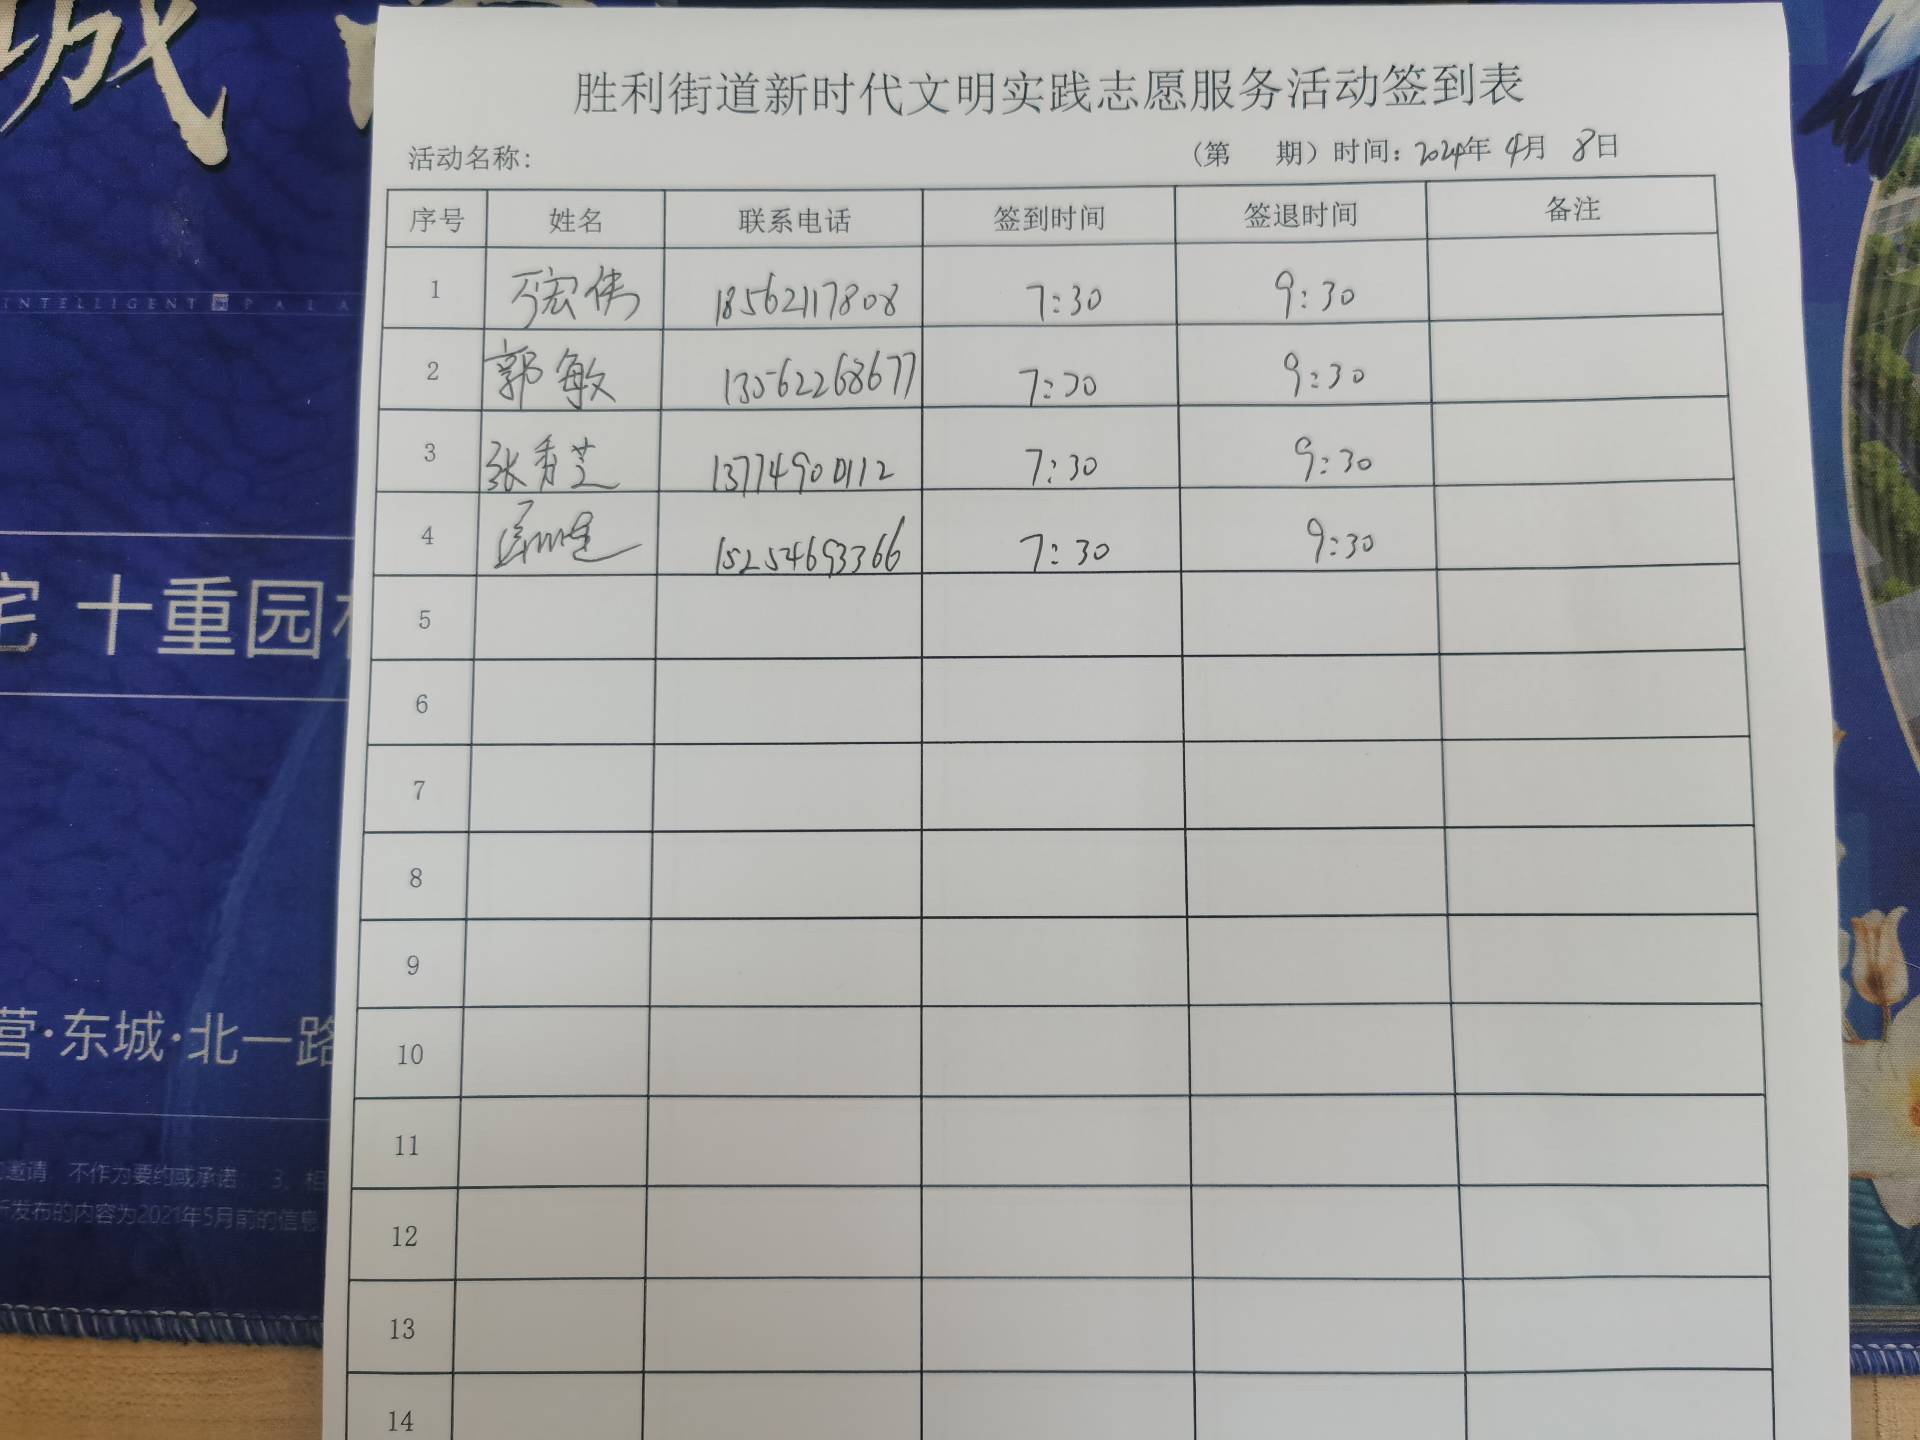 城
INTELLIGENT PALA
宅 十重园
营·东城·北一路
邀请 不作为要约或承诺; 3、相
所发布的内容为2021年5月前的信息
胜利街道新时代文明实践志愿服务活动签到表
活动名称: (第 期) 时间: 2024年 4月 8日
序号 姓名 联系电话 签到时间 签退时间 备注
1 丁宏伟 18562117808 7:30 9:30
2 郭敏 13562268677 7:30 9:30
3 张秀芝 13774900112 7:30 9:30
4 15254693366 7:30 9:30
5
6
7
8
9
10
11
12
13
14